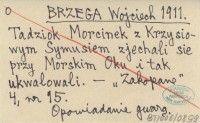 O
BRZEGA Wojciech 1911.
Tadziok Morcinek z Krzysio-
wym Symusiem zjechali sie
przy Morskim Oku i tak
ukwalowali. — „Zakopane"
4, nr 15.
Opowiadanie gwarą.